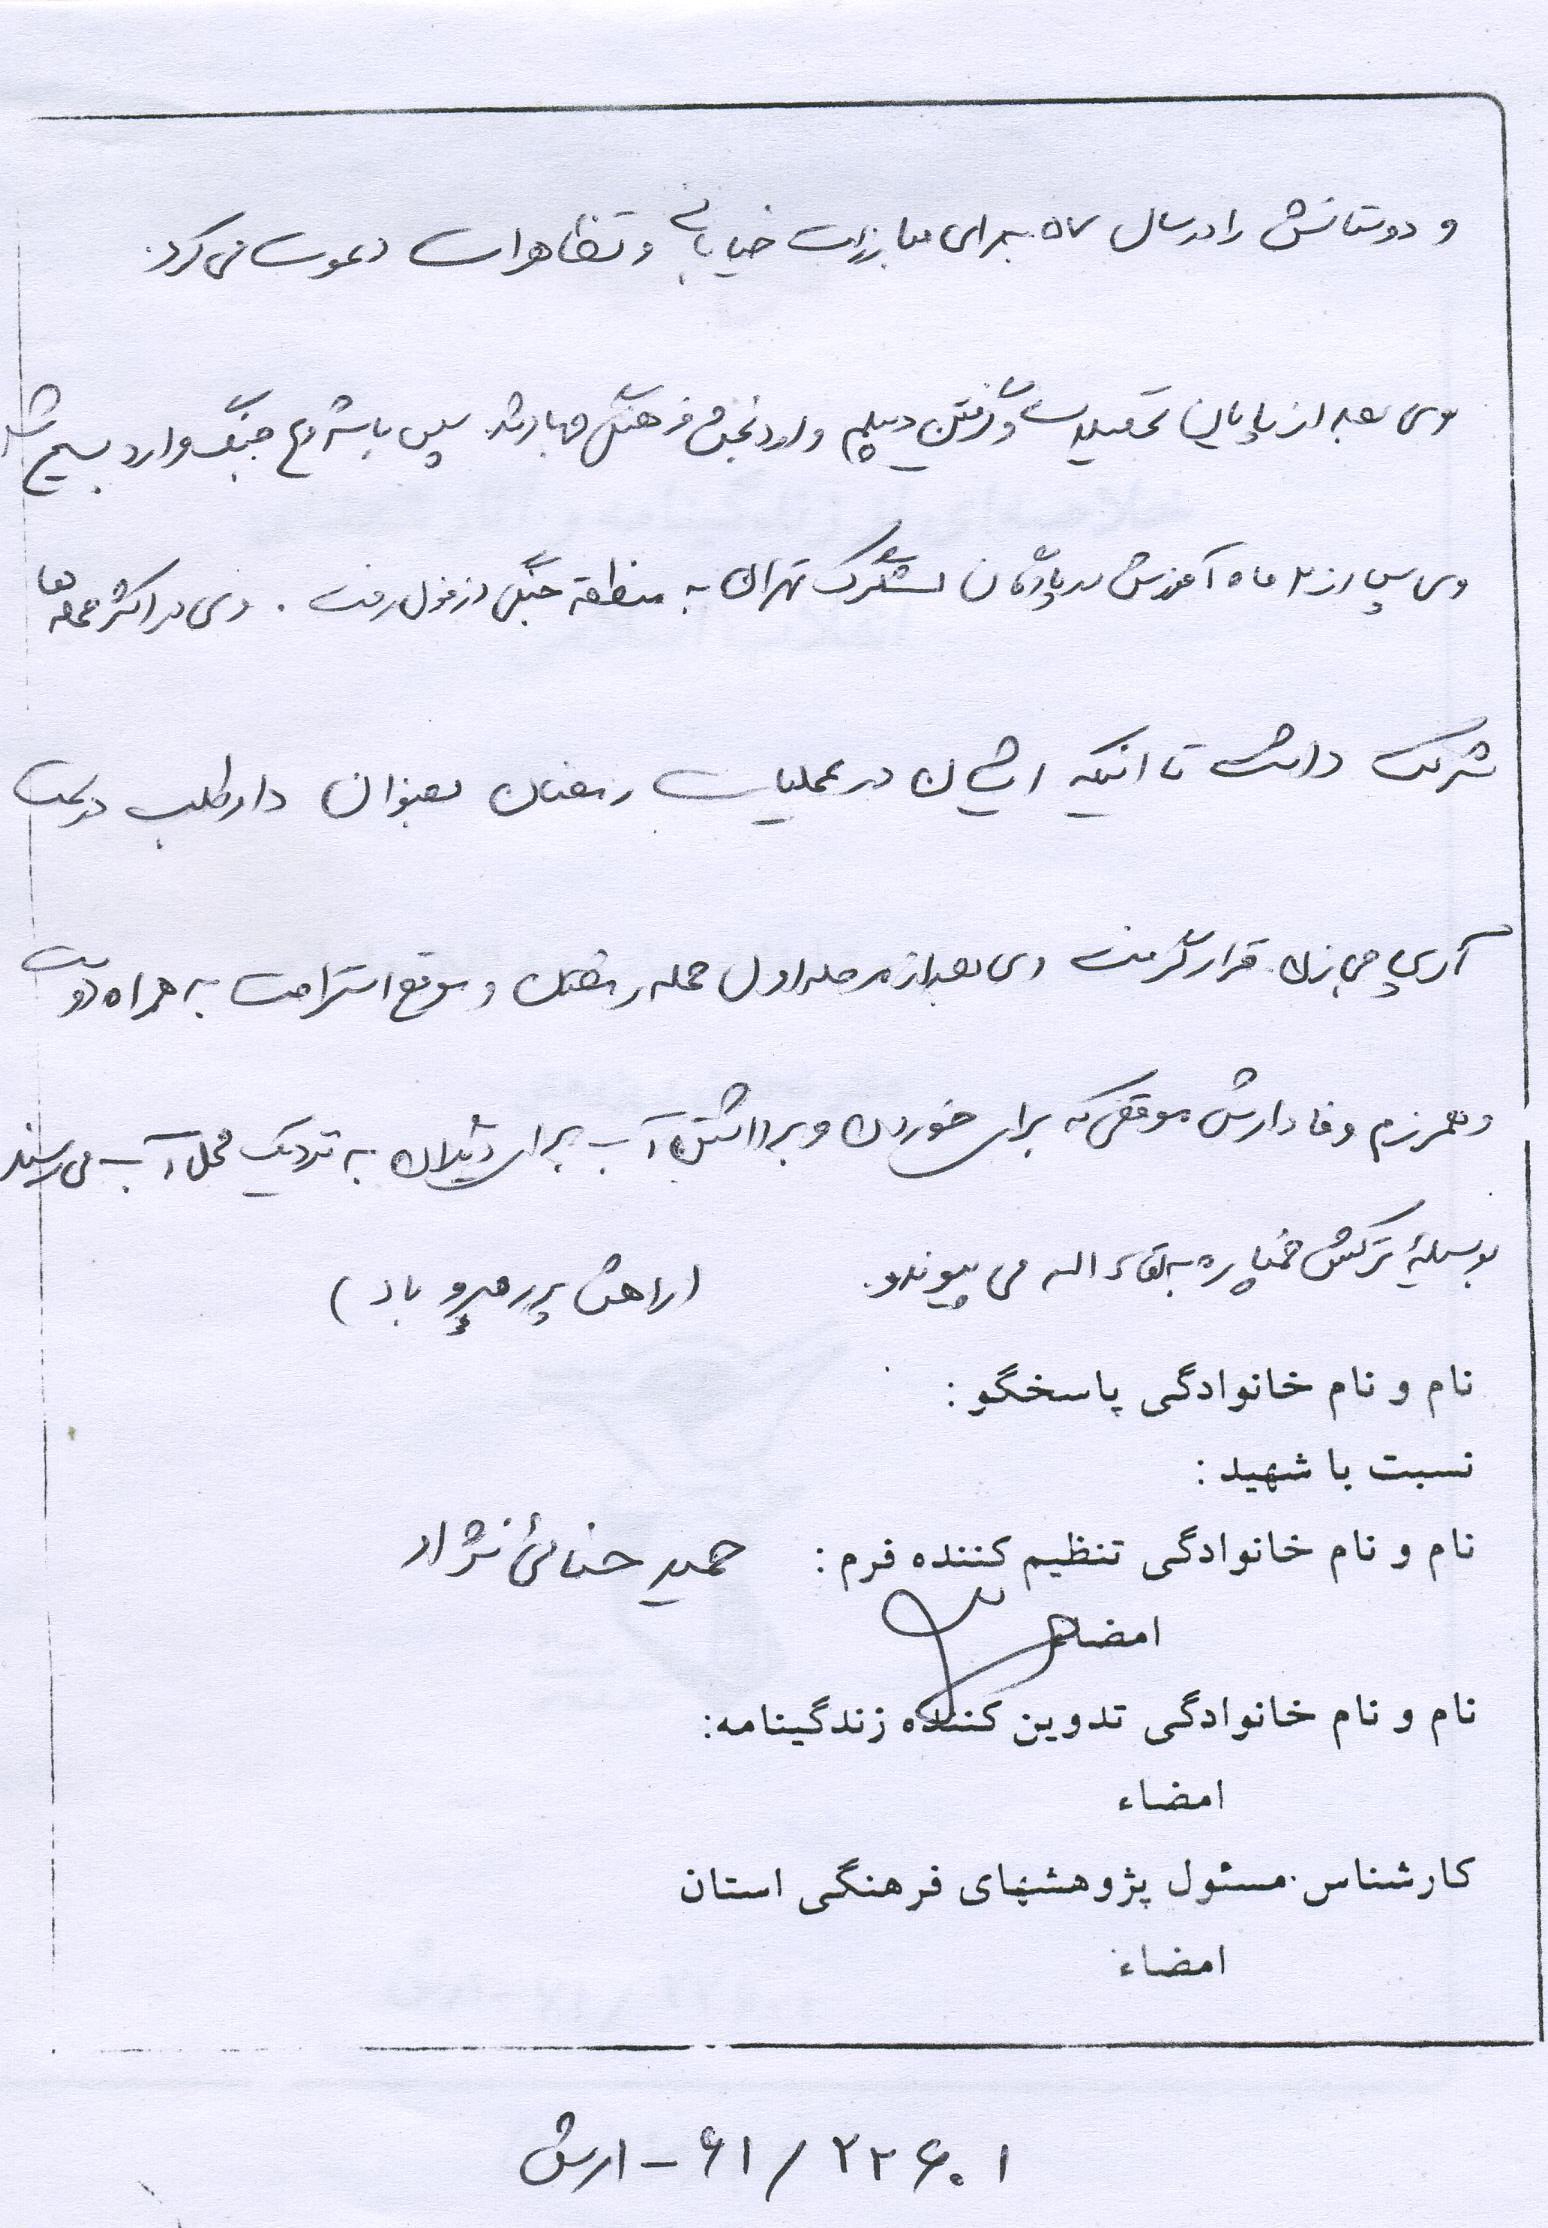 و دوستانش را در سال ۵۷ برای مبارزات خیابانی و تظاهرات دعوت می کرد.
وی بعد از پایان تحصیلات و گرفتن دیپلم وارد انجمن فرهنگی جهاد شد. سپس با شروع جنگ وارد بسیج شد
وی پس از ۲ ماه آموزش در پادگان لشگرک تهران به منطقه جنگی دزفول رفت . وی در اکثر حمله ها
شرکت داشت تا اینکه ایشان در عملیات رمضان بعنوان داوطلب در پست
آرپی جی زن قرار گرفت وی بعد از مرحله اول حمله رمضان و موقع استراحت به همراه دوست
و همرزم وفادارش موقعی که برای خوردن و برداشتن آب برای دیگران به نزدیک محل آب می رسند
بوسیله ترکش خمپاره به لقاء اله می پیوندد. (راهش پر رهرو باد)
نام و نام خانوادگی پاسخگو :
نسبت با شهید :
نام و نام خانوادگی تنظیم کننده فرم : حمید حنائی نژاد
امضاء
نام و نام خانوادگی تدوین کننده زندگینامه:
امضاء
کارشناس مسئول پژوهشهای فرهنگی استان
امضاء
۲۲۶۰۱ / ۶۱ - ارش